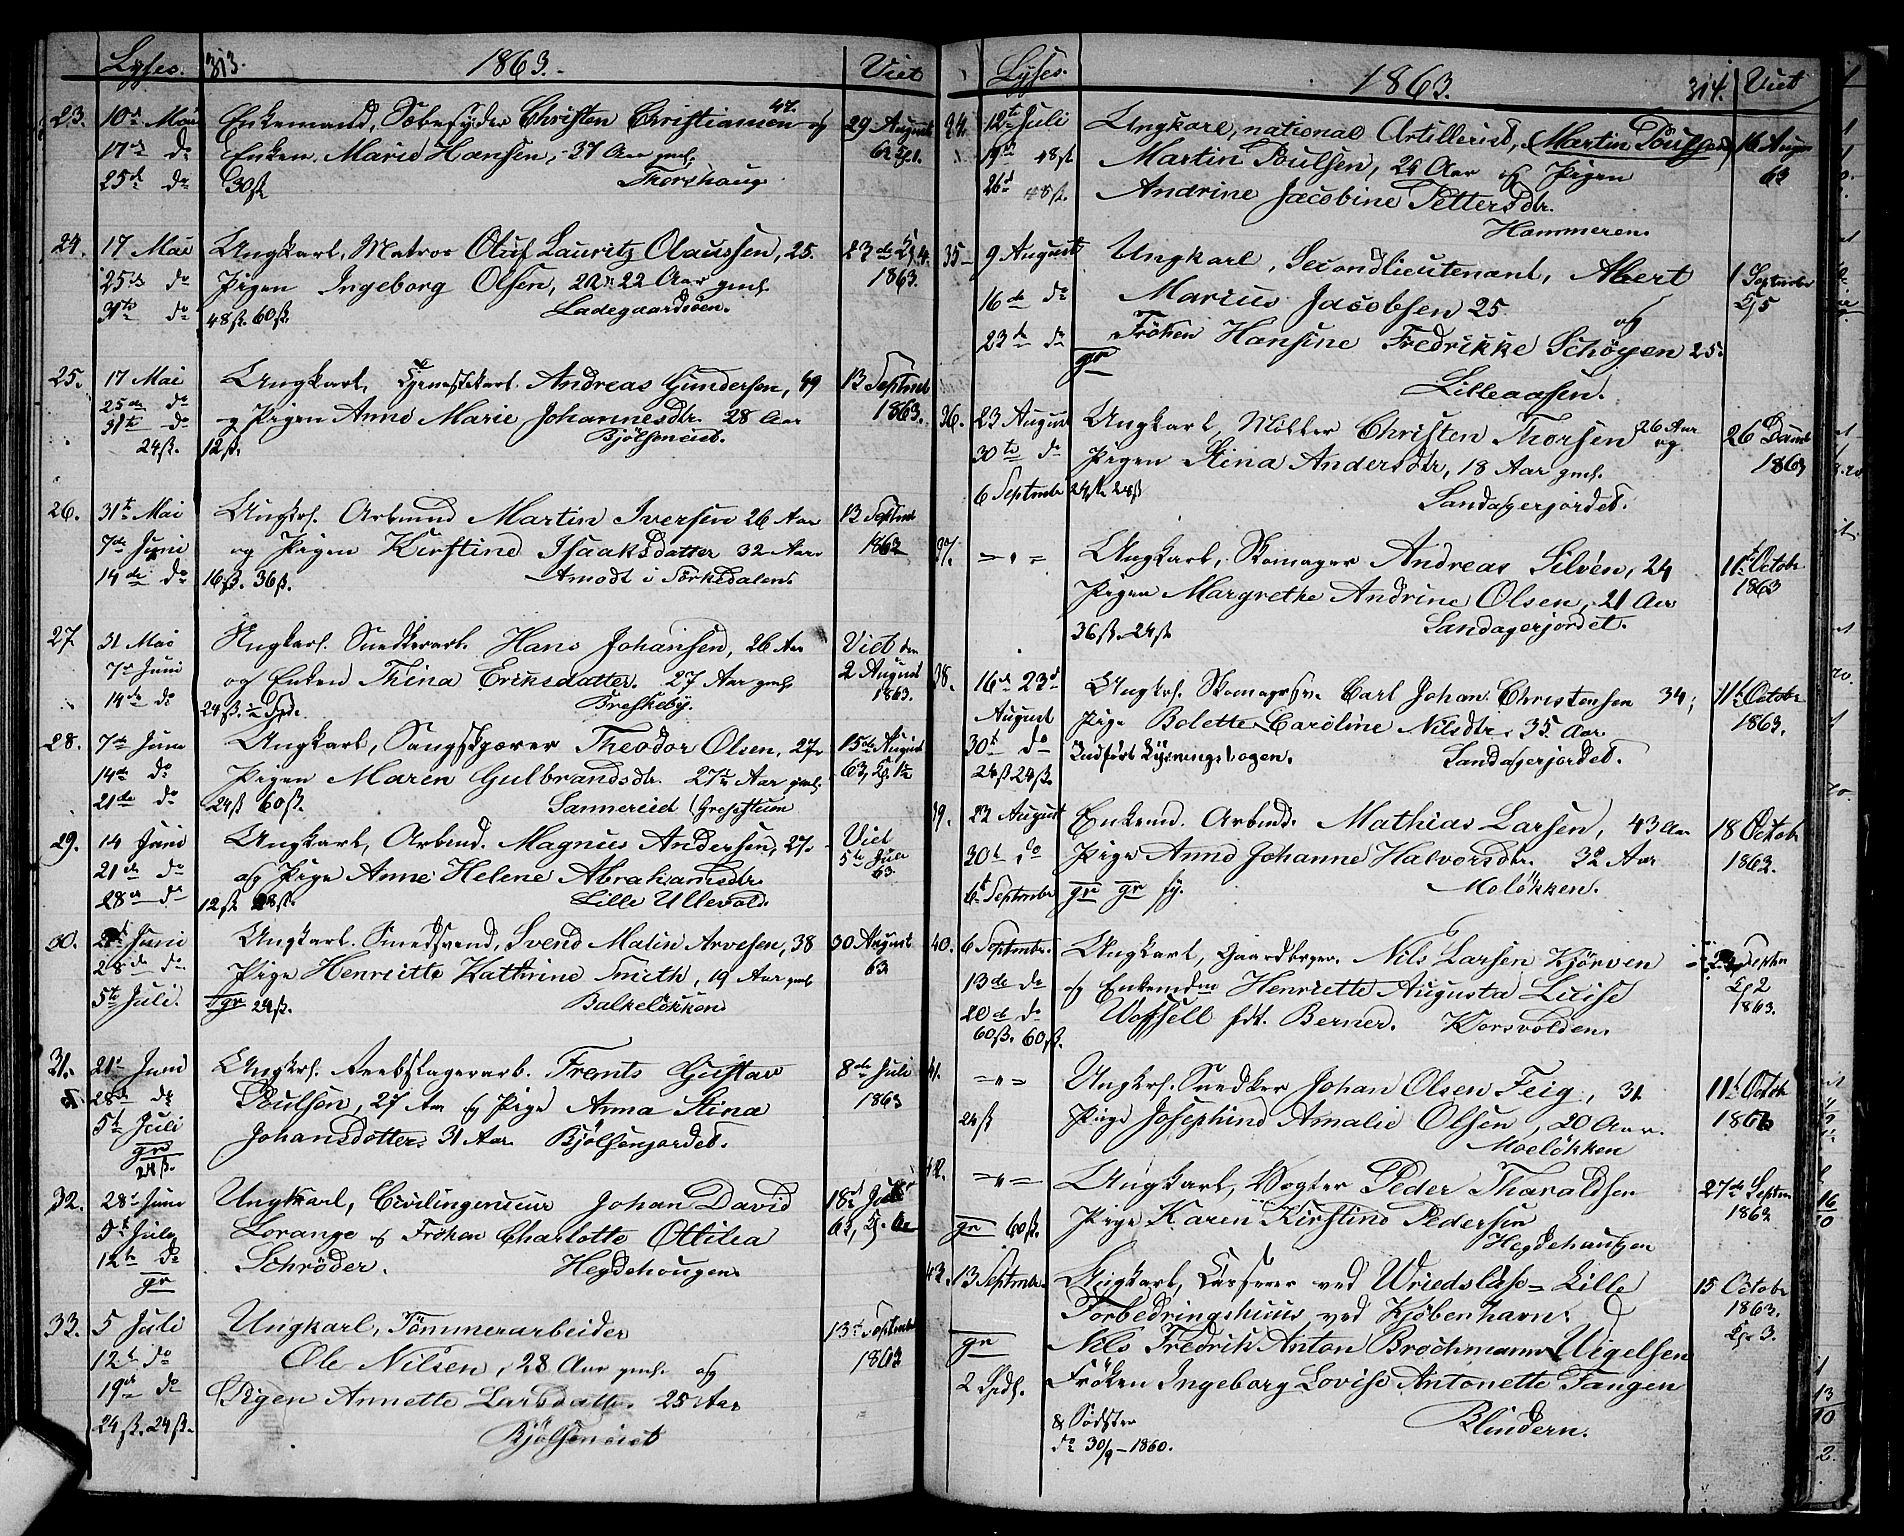 Lyses. 313. 1863. Viet
23. 10de Mai Enkemand, Sæbesyder Christen Christiansen 47. og 29 August
17de do Enken Marie Hansen, 37 Aar gml.
25de do 30ß Thorshaug
24. 17 Mai Ungkarl, Matros Oluf Lauritz Olaussen, 25. 23de
25de do Pigen Ingeborg Olsen, 22 Aar gml. 1863.
31te do 48ß. 60ß. Ladegaardsøen.
25. 17 Mai Ungkarl, Tjenestekarl Andreas Gundersen, 49 13 Septmbr
25de do og Pigen Anne Marie Johannesdtr. 28 Aar 1863.
31te do Bjølseneiet.
24ß. 12ß.
26. 31te Mai Ungkrl. Arbmnd Martin Iversen 26 Aar 13 Septmbr
7de Juni og Pigen Kirstine Isaaksdatter 32 Aar 1863
14de do 16ß. 36ß. Amodt i Sørkedalen
27 31 Mai Ungkarl. Snedkerarb. Hans Johansen, 26 Aar Viet den
7de Juni og Enken Thina Eriksdatter. 27 Aar gml. 2 August
14de do 24ß. Breskeby. 1863.
28. 7de Juni Ungkarl, Theodor Olsen, 27 15de August
14de do Pigen Maren Gulbrandsdtr. 27 Aar gml. 63,
21de do 24ß 60ß. Sannereiet (Grefstum
29. 14 Juni Ungkarl, Arbmd. Magnus Andersen, 27. Viet
21de do og Pige Anne Helene Abrahamsdtr. 5te Juli
28de do 12ß. Lille Ullevold. 63.
30. Juni Ungkarl. Smedsvend, Svend Malin Arvesen, 38 30 August
28de do Pige Henriette Kathrine Smith, 19 Aar gml 63
5te Juli. gr 24ß. Balkeløkken
31. 21de Juni Ungkrl. Reebslagerarb. Frents Gustav 8de Juli
28de do Poulsen, 27 Aar og Pige Anna Stina 1863
5te Juli Johansdotter. 31 Aar. Bjølsenjordet.
gr
24ß.
32. 28de Juni Ungkarl, Civilingenieur Johan David 18de
5te July Lorange og Frøken Charlotte Ottilia
12te do Schrøder. Hegdehougen
gr
33. 5 Juli Ungkarl, Tømmerarbeider 13de Septembr
12te do Ole Nilsen, 28 Aar gml. og 1863
19de do Pigen Annette Larsdatter. 25 Aar
24ß. 24ß. Bjølseneiet
Lyses. 1863. 314. Viet
34. 12te Juli Ungkarl, national Artillerist, (Martin Poulsen) 16 August
19de 48ß Martin Poulsen, 26 Aar og Pigen 63
26de 48ß. Andrine Jacobine Pettersdtr.
Hammeren.
35 9 August Ungkarl, Secondlieutenant, Albert 1 Septembr
16de do Marius Jacobsen 25. og
23de do Frøken Hansine Fredrikke Schøyen 25.
gr Lilleaasen.
36. 23 August Ungkarl, Møller Christen Thorsen 26 Aar og 26
30te do Pigen Stina Andersdtr, 18 Aar gml. 1863
6 Septmbr 24ß. 24ß Sandagerjordet.
37. = " = Ungkarl, Skomager Andreas Silvén, 24 11te Octobr
Pigen Margrethe Andrine Olsen, 21 Aar 1863
36ß. 24ß Sandagerjordet.
38. 16de 23de Ungkrl. Skomagersv. Carl Johan Christensen 34; 11te Octobr
August Pige Bolette Caroline Nilsdtr. 35 Aar 1863.
30te do Sandagerjordet.
24ß 24ß.
39. 23 August Enkemd. Arbmd. Mathias Larsen, 43 Aar 18 Octobr
30te do Pige Anne Johanne Halvorsdtr. 32 Aar 1863.
6te Septembr gr gr fg. Moløkken.
40. 6 Septmbr. Ungkarl, Gaardbruger. Nils Larsen Kjørven Septbr
13de do og Enkemdm Henriette Augusta Luise
20de do fdt. Berner. Korsvolden. 1863.
60ß. 60ß.
41. = " = Ungkrl. Snedker Johan Olsen Feig, 31 11te Octobr
24ß Pige Josephine Amalie Olsen, 20 Aar. 1863
Moeløkken
42. = " = Ungkarl, Vogter Peder Tharaldsen 27de Septmbr
gr 60ß. Pige Karen Kirstine Pedersen 1863
Hegdehaugen
43. 13 Septmbr. Ungkarl, Lærer ved Vridsløse Lille 15 Octobr
Forbedringshuus ved Kjøbenhavn. 1863.
gr Nils Fredrik Anton Brochmann Vigelsen
2 Spdl. Frøken Ingeborg Lovise Antonette Fangen
& Sødster Blindern.
do 30/9 – 1860.